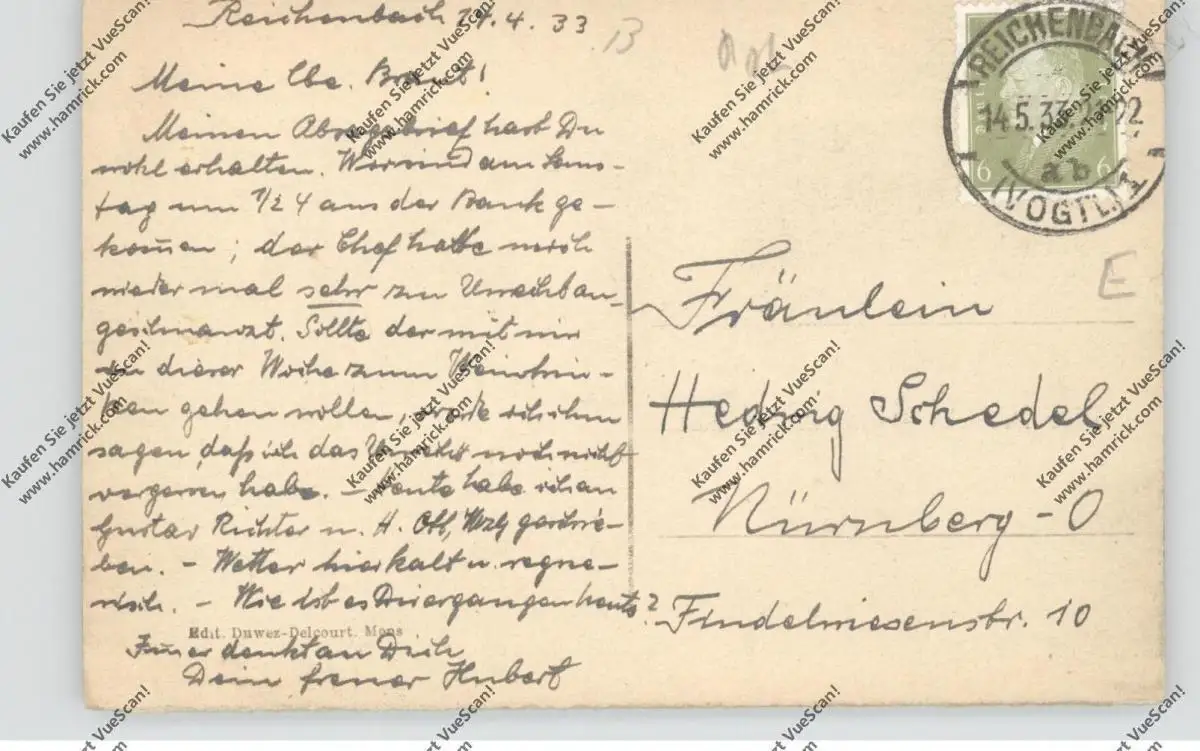 Reichenbach 14.4.33
B
Meine lbe. Braut!
Meinen Absagebrief hast Du
wohl erhalten. Wir sind am Sams-
tag um 1/2 4 aus der Bank ge-
kom̅en; der Chef hatte mich
wieder mal sehr zu
Sollte der mit mir
in dieser Woche zum
gehen wollen, werde ich ihm
sagen, daß ich das noch nicht
vergessen habe. - Heute habe ich an
Gustav Richter u. H. Ott, Wzbg geschrie-
ben. - Wetter hier kalt u. regne-
risch. - Wie ist es Dir ergangen heute?
Im̅er denkt an Dich
Dein treuer Hubert
Edit. Duwez-Delcourt. Mons
REICHENBACH
14.5.33.21-22
ab
(VOGTL.) 1
6 6
E
Fräulein
Hedwig Schedel
Nürnberg-O
Findelwiesenstr. 10
Kaufen Sie jetzt VueScan!
www.hamrick.com
Kaufen Sie jetzt VueScan!
www.hamrick.com
Kaufen Sie jetzt VueScan!
www.hamrick.com
Kaufen Sie jetzt VueScan!
www.hamrick.com
Kaufen Sie jetzt VueScan!
www.hamrick.com
Kaufen Sie jetzt VueScan!
www.hamrick.com
Kaufen Sie jetzt VueScan!
www.hamrick.com
Kaufen Sie jetzt VueScan!
www.hamrick.com